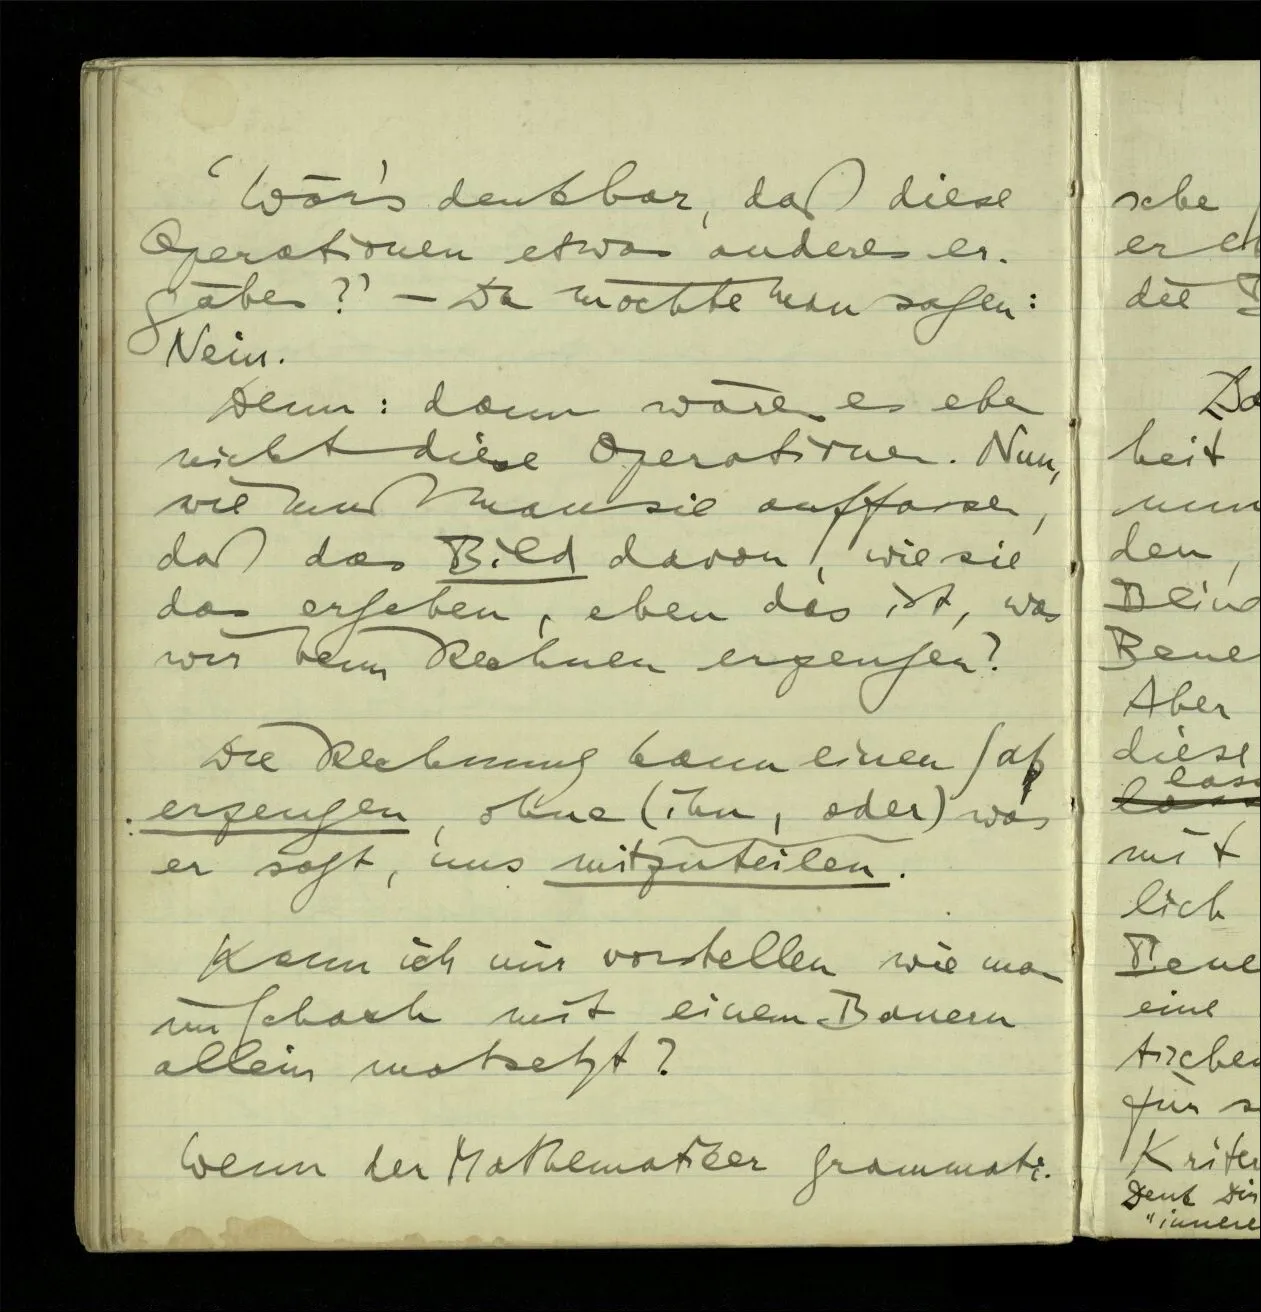 "Wär's denkbar, daß diese
Operationen etwas anderes er-
gäbe??" – Da möchte man sagen:
Nein.
Denn: dann wären es eben
nicht diese Operationen. Nun,
wie muß man sie auffassen,
daß das Bild davon, wie sie
das ergeben, eben das ist, was
wir beim Rechnen erzeugen?
Die Rechnung kann einen Satz
erzeugen, ohne (ihn, oder) was
er sagt, uns mitzuteilen.
Kann ich mir vorstellen wie man
im Schach mit einem Bauern
allein mattsetzt?
Wenn der Mathematiker grammati-
sche
er
die
Da
heit
nun
den,
Blind
Bene
Aber
diese
lass
mit
lich
Bene
eine
tischen
für s
Kriter
Denk Dir
"innere